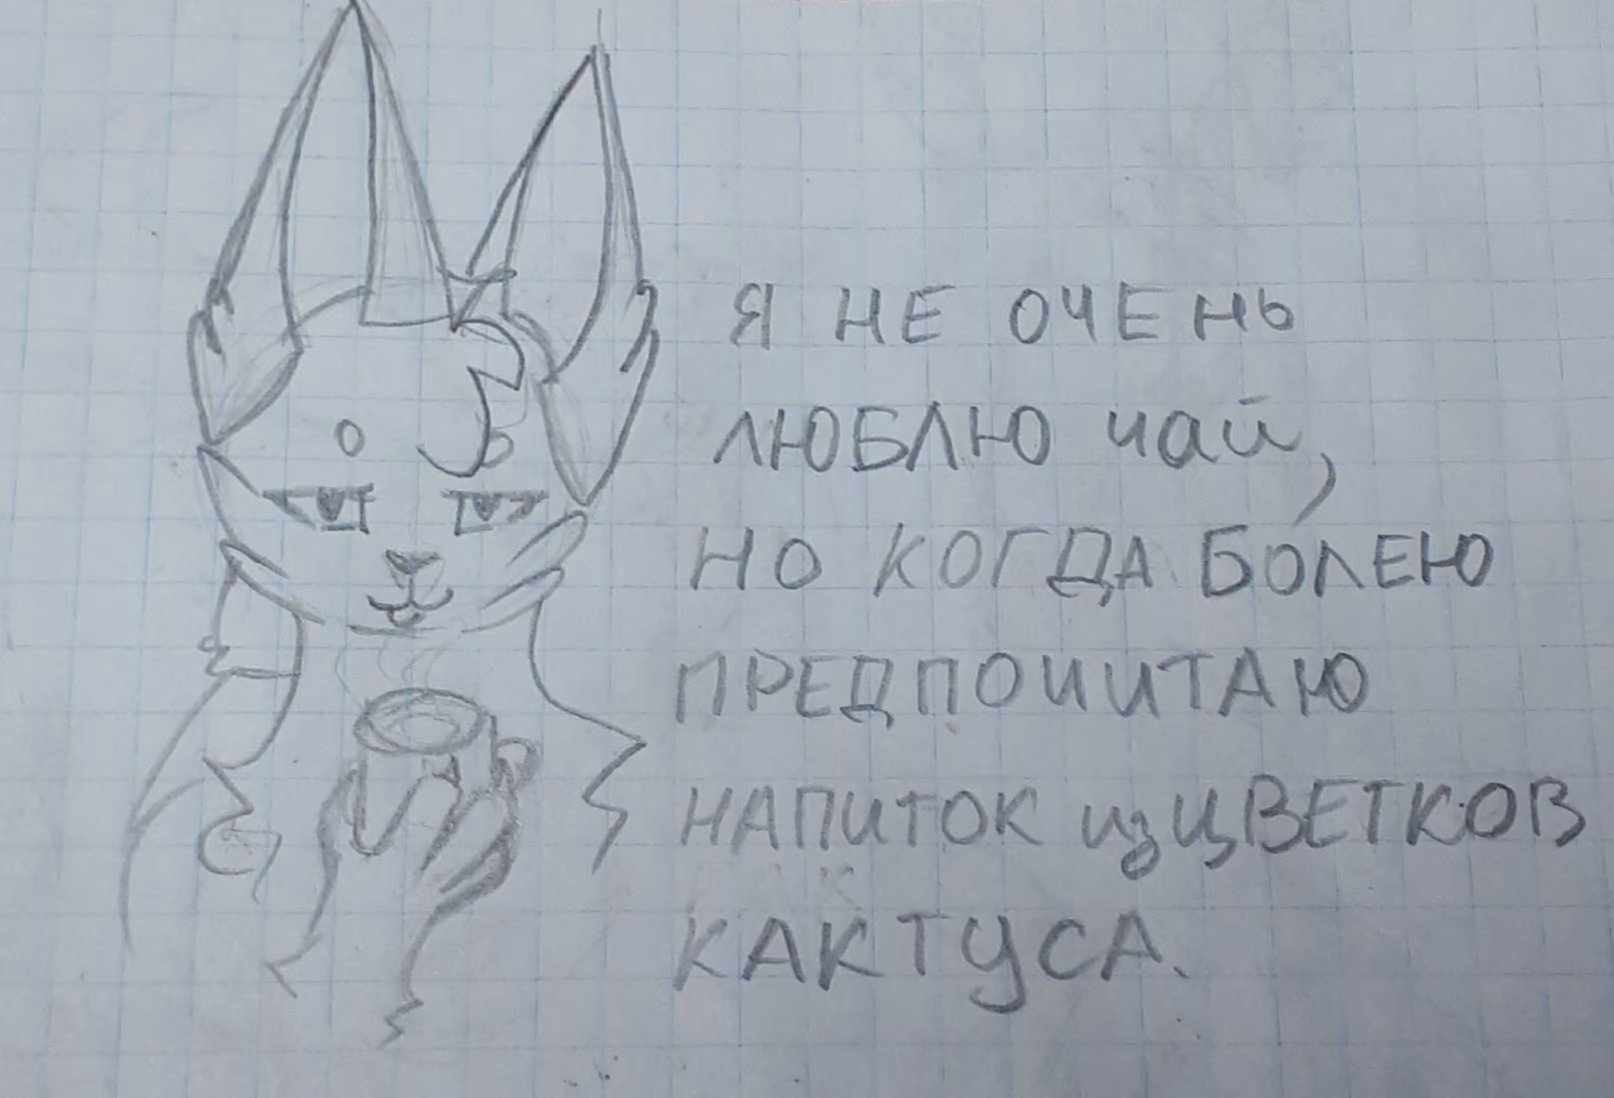 Я НЕ ОЧЕНЬ
ЛЮБЛЮ чай,
НО КОГДА БОЛЕЮ
ПРЕДПОЧИТАЮ
НАПИТОК из ЦВЕТКОВ
КАКТУСА.